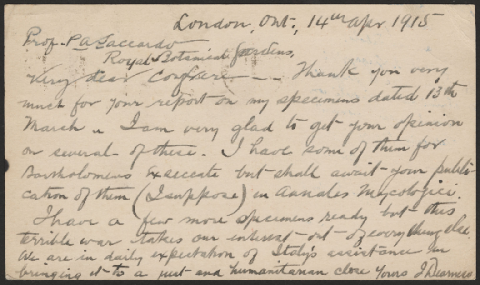 London, Ont., 14th Apr 1915
Prof. P A Saccardo
Royal Botanical Gardens,
Very dear Confrere — — Thank you very
much for your report on my specimens dated 13th
March. I am very glad to get your opinion
on several of these. I have some of them for
Bartholomews Exsiccate but shall await your publi-
cation of them (I suppose) in Annales Mycologici.
I have a few more specimens ready but this
terrible war takes our interest out of everything else
We are in daily expectation of Italy's assistance in
bringing it to a just and humanitarian close Yours J Dearness